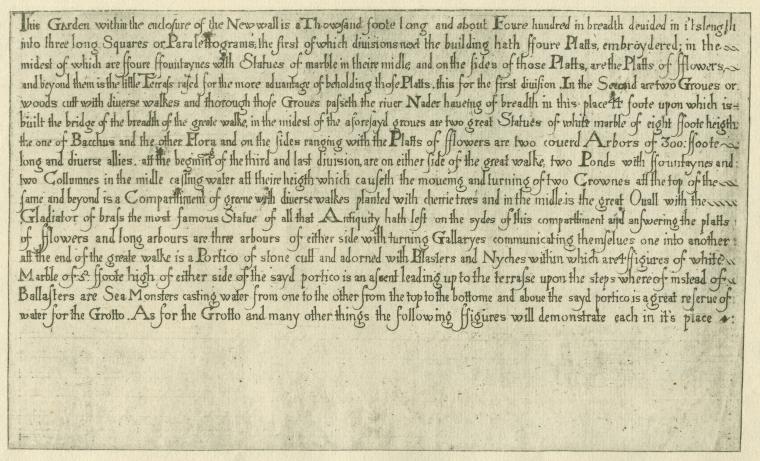 This Garden within the enclosure of the New wall is a Thowsand foote long and about Foure hundred in breadth deuided in it's length
into three long Squares or Paralellograms, the first of which diuisions next the building hath ffoure Platts, embroydered; in the
midest of which are ffoure ffountaynes with Statues of marble in theire midle, and on the sides of those Platts, are the Platts of fflowers,
and beyond them is the little Terrass rased for the more aduantage of beholding those Platts, this for the first diuision. In the Second are two Groues or
woods cutt with diuerse walkes and thorough those Groues passeth the riuer Nader haueing of breadth in this place 44 foote upon which is
built the bridge of the breadth of the greate walke, in the midest of the aforesayd groues are two great Statues of white marble of eight ffoote heigth
the one of Bacchus and the other Flora and on the sides ranging with the Platts of fflowers are two couerd Arbors of 300: ffoote
long and diuerse allies. att the begining of the third and last diuision, are on either side of the great walke, two Ponds with ffountaynes and
two Collumnes in the midle casting water all theire heigth which causeth the moueing and turning of two Crownes att the top of the
same and beyond is a Compartiment of greene with diuerse walkes planted with cherrie trees and in the midle is the great Ouall with the
Gladiator of brass the most famous Statue of all that Antiquity hath left on the sydes of this compartiment and answering the platts
of fflowers and long arbours are three arbours of either side with turning Gallaryes communicating themselues one into another:
att the end of the greate walke is a Portico of stone cutt and adorned with Pilasters and Nyches within which are 4 ffigures of white
Marble of 5 ffoote high of either side of the sayd portico is an assent leading up to the terrasse upon the steps whereof instead of
Ballasters are Sea Monsters casting water from one to the other from the top to the bottome and aboue the sayd portico is a great reserue of
water for the Grotto. As for the Grotto and many other things the following ffigures will demonstrate each in it's place